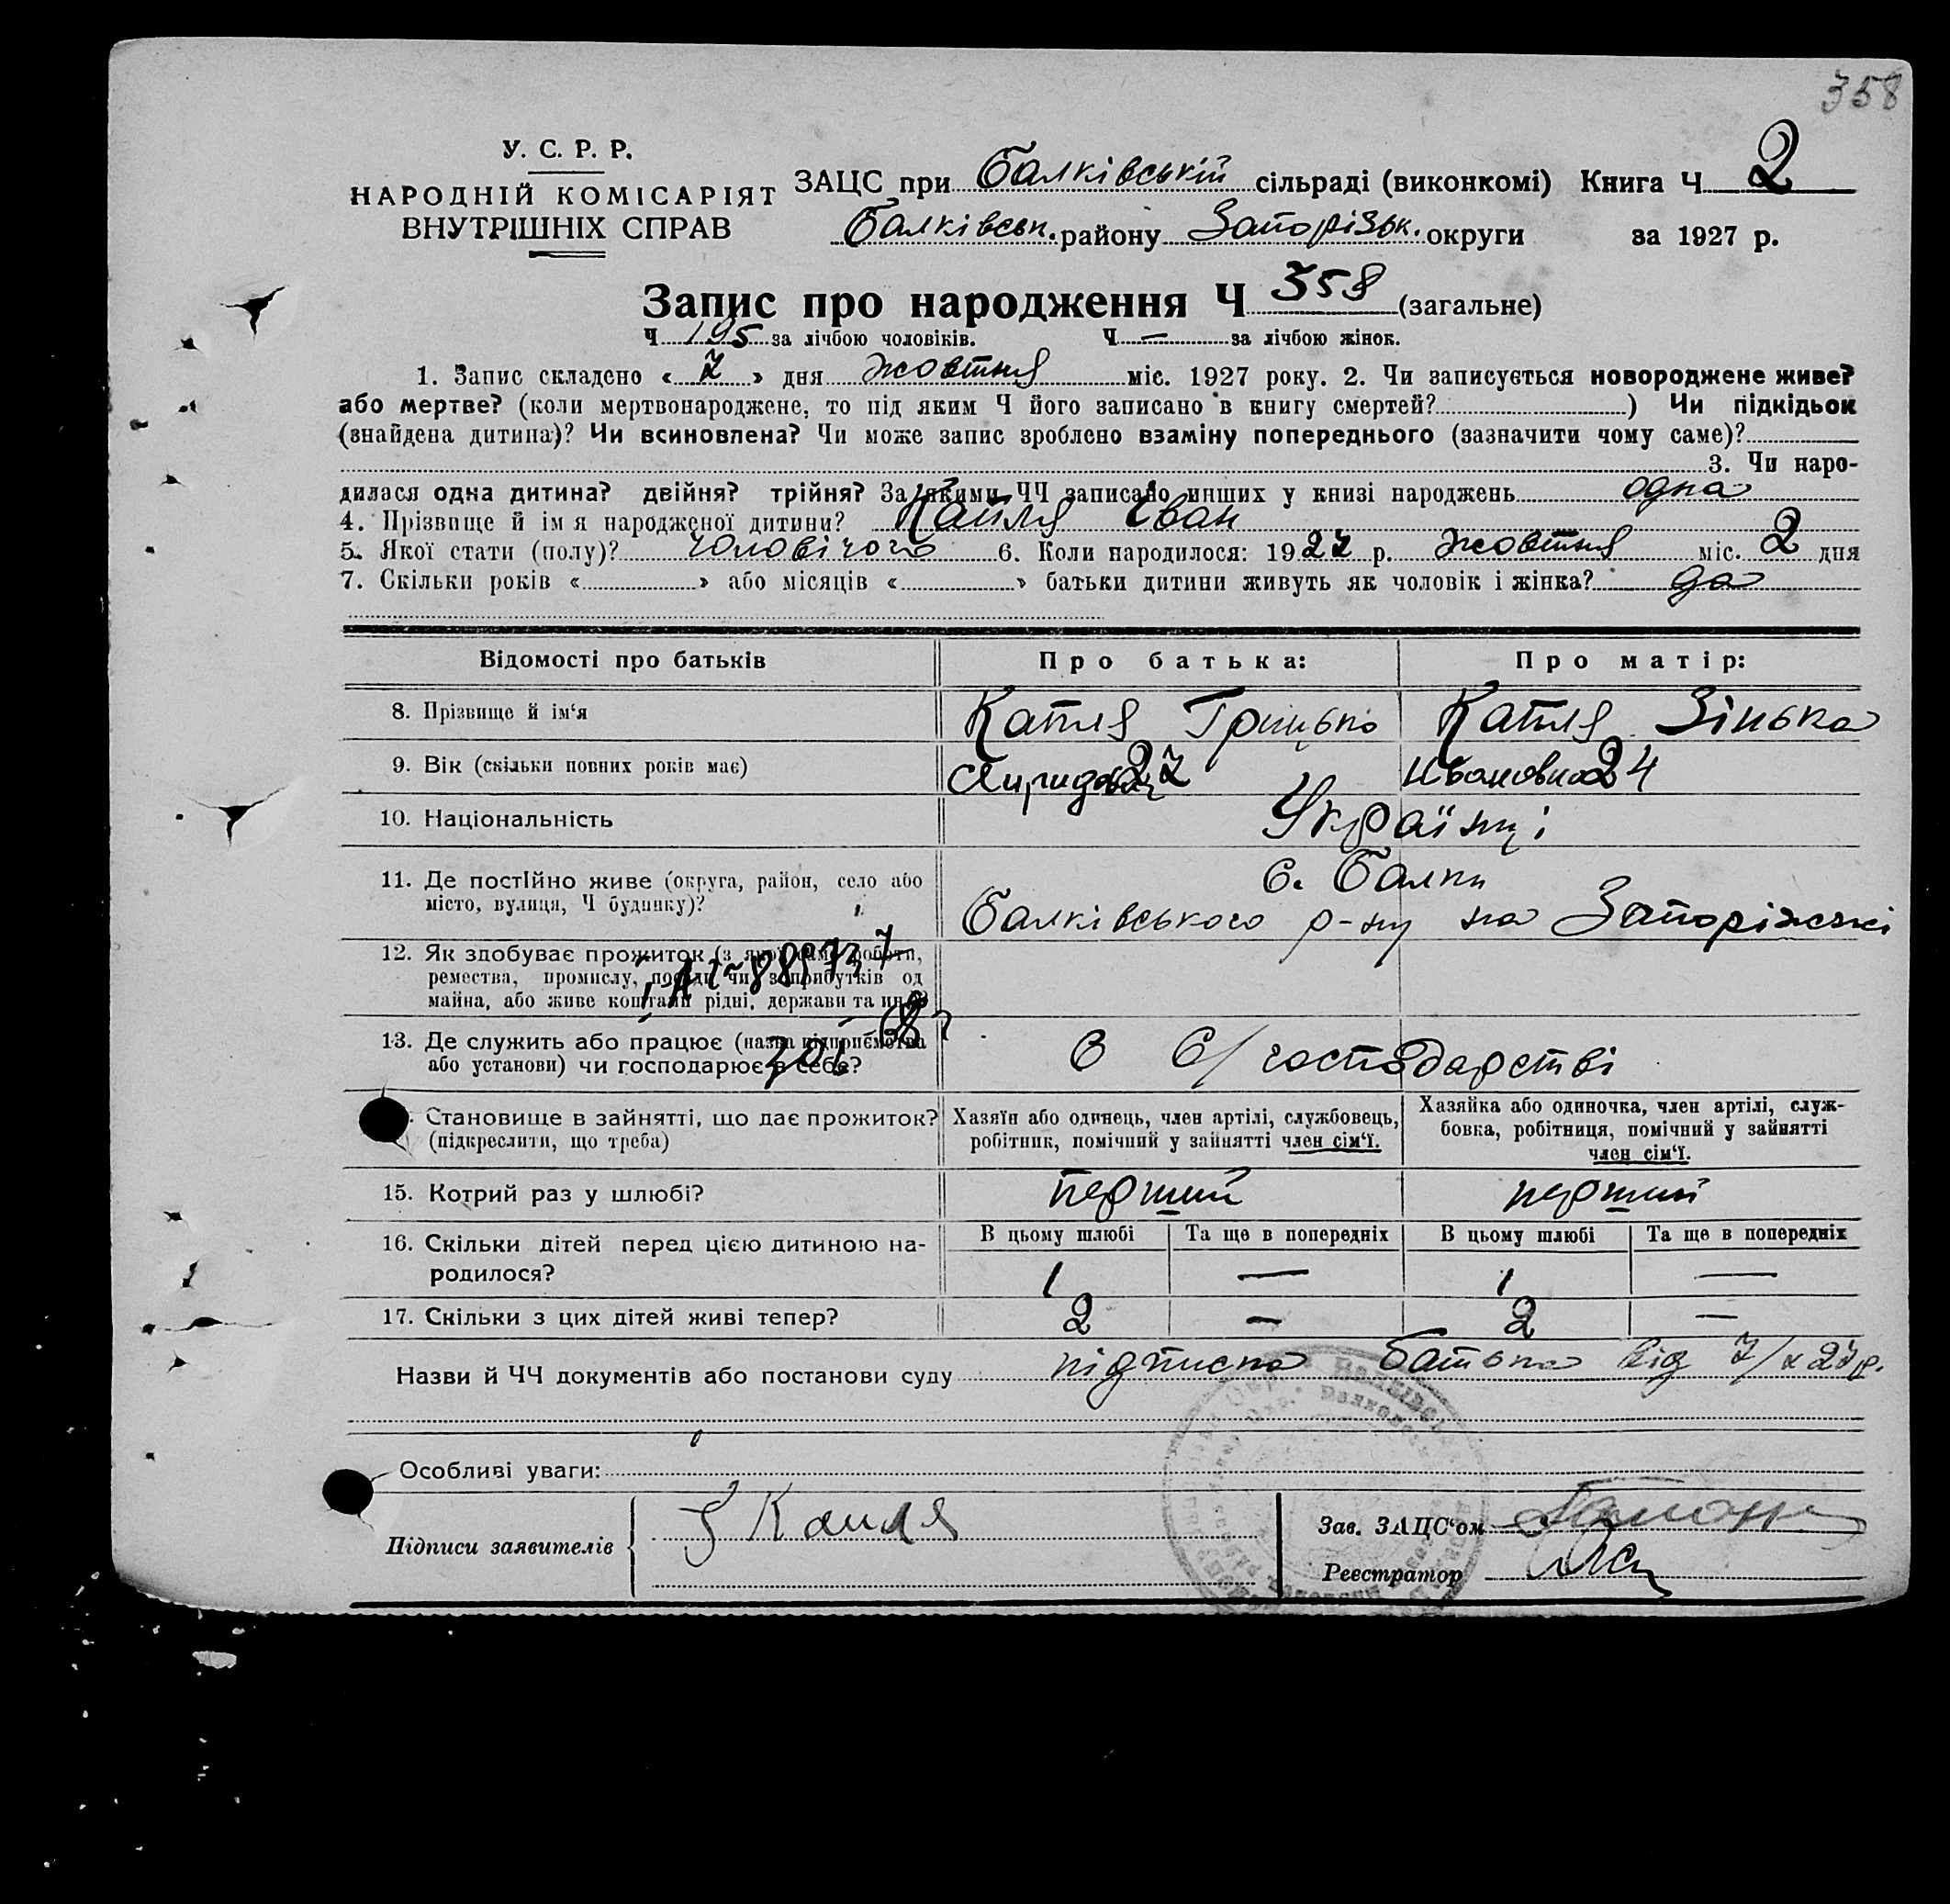 358
У. С. Р. Р.
НАРОДНІЙ КОМІСАРІЯТ
ВНУТРІШНІХ СПРАВ
ЗАЦС при Балківській сільраді (виконкомі) Книга Ч 2
Балківськ. району Запорізьк. округи за 1927 р.
Запис про народження Ч 358 (загальне)
Ч 195 за лічбою чоловіків. Ч — за лічбою жінок.
1. Запис складено « 7 » дня жовтня міс. 1927 року. 2. Чи записується новороджене живе?
або мертве? (коли мертвонароджене, то під яким Ч його записано в книгу смертей? ) Чи підкідьок
(знайдена дитина)? Чи всиновлена? Чи може запис зроблено взаміну попереднього (зазначити чому саме)?
3. Чи наро-
дилася одна дитина? двійня? трійня? За якими ЧЧ записано инших у книзі народжень одна
4. Прізвище й ім я народженої дитини? Капля Іван
5. Якої стати (полу)? чоловічого 6. Коли народилося: 1927 р. жовтня міс. 2 дня
7. Скільки років « » або місяців « » батьки дитини живуть як чоловік і жінка? да
Відомості про батьків Про батька: Про матір:
8. Прізвище й ім'я Капля Грицько Капля Зінька
9. Вік (скільки повних років має) 27 Ивановна 24
10. Національність Українці
11. Де постійно живе (округа, район, село або
місто, вулиця, Ч будинку)?
с. Балки
Балківського р-ну на Запоріжжі
12. Як здобуває прожиток (з якої саме роботи,
ремества, промислу, посади чи з прибутків од
майна, або живе коштами рідні, держави та инш.)
13. Де служить або працює (назва підприємства
або установи) чи господарює в себе?
в с/господарстві
Становище в зайнятті, що дає прожиток?
(підкреслити, що треба)
Хазяїн або одинець, член артілі, службовець,
робітник, помічний у зайнятті член сім'ї.
Хазяйка або одиночка, член артілі, служ-
бовка, робітниця, помічний у зайнятті
член сім'ї.
15. Котрий раз у шлюбі? перший перший
16. Скільки дітей перед цією дитиною на-
родилося?
В цьому шлюбі Та ще в попередніх В цьому шлюбі Та ще в попередніх
1 — 1 —
17. Скільки з цих дітей живі тепер? 2 — 2 —
Назви й ЧЧ документів або постанови суду підписка батька від 7/х 27р.
Особливі уваги:
Підписи заявителів Капля
Зав. ЗАЦС'ом
Реєстратор